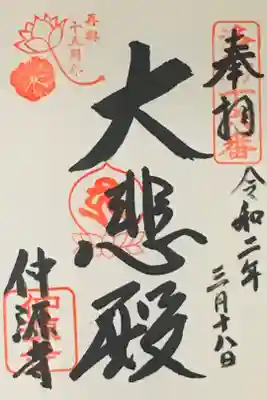 奉拝
令和二年
三月十八日
大悲殿
仲源寺